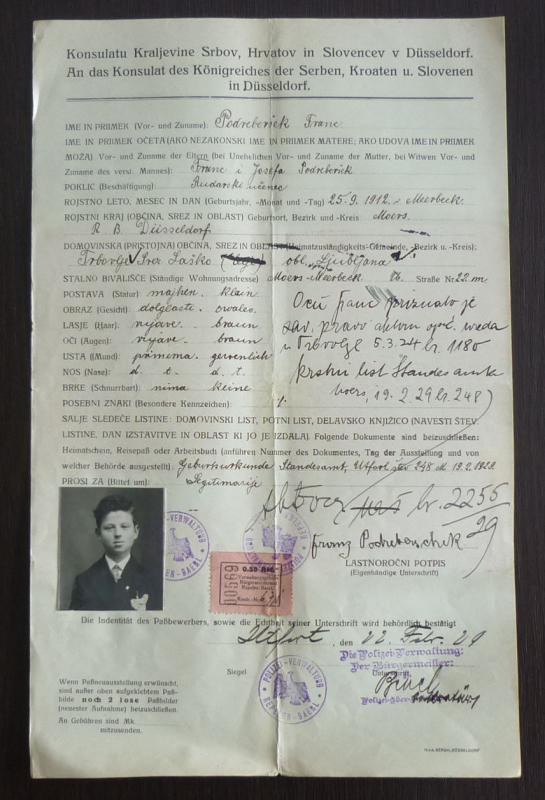 Konsulatu Kraljevine Srbov, Hrvatov in Slovencev v Düsseldorf.
An das Konsulat des Königreiches der Serben, Kroaten u. Slovenen
in Düsseldorf.
IME IN PRIIMEK (Vor- und Zuname): Podreberšek Franc
IME IN PRIIMEK OČETA (AKO NEZAKONSKI IME IN PRIIMEK MATERE; AKO UDOVA IME IN PRIIMEK
MOŽA) Vor- und Zuname der Eltern (bei Unehelichen Vor- und Zuname der Mutter, bei Witwen Vor- und
Zuname des verst. Mannes): Franc i Josefa Podreberšek
POKLIC (Beschäftigung): Rudarski učenec
ROJSTNO LETO, MESEC IN DAN (Geburtsjahr, -Monat und -Tag) 25.9.1912. Meerbeck
ROJSTNI KRAJ (OBČINA, SREZ IN OBLAST) Geburtsort, Bezirk und -Kreis: Moers
R. B. Düsseldorf
DOMOVINSKA (PRISTOJNA) OBČINA, SREZ IN OBLAST (Heimatzuständigkeits-Gemeinde, -Bezirk u. -Kreis):
Trbovlje Srez Laško obl. Ljubljana
STALNO BIVALIŠČE (Ständige Wohnungsadresse) Moers-Meerbeck Straße Nr. 22 m
POSTAVA (Statur) majhen klein
OBRAZ (Gesicht) dolgčasti ovales
LASJE (Haar): rijave braun
OČI (Augen): rijave braun
USTA (Mund): primerna gewenlich
NOS (Nase): d. t. d. t.
BRKE (Schnurrbart): nima keine
Ocu Franc priznato je
zav. pravo
u Trbovlje 5.3.24 br. 1180
krstni list Standesamta
Moers, 19.2.29 br. 248
POSEBNI ZNAKI (Besondere Kennzeichen):
SALJE SLEDEČE LISTINE: DOMOVINSKI LIST, POTNI LIST, DELAVSKO KNJIŽICO (NAVESTI ŠTEV.
LISTINE, DAN IZSTAVITVE IN OBLAST KI JO JE IZDALA). Folgende Dokumente sind beizuschließen:
Heimatschein, Reisepaß oder Arbeitsbuch (anführen Nummer des Dokumentes, Tag der Ausstellung und von
welcher Behörde ausgestellt). Geburtsurkunde Standesamt, Utfort štev 248 od 19.2.1929.
PROSI ZA (Bittet um): Legitimacije
br. 2255/29
Franz Podreberschek
LASTNOROČNI POTPIS
(Eigenhändige Unterschrift)
POLIZEI-VERWALTUNG
REPELEN-BAERL
00569
0.50 RM.
Verwaltungsgebühr
Bürgermeisteramt
Repelen-Baerl
Die Indentität des Paßbewerbers, sowie die Echtheit seiner Unterschrift wird behördlich bestätigt
Utfort, den 22. Febr. 29
Siegel
Unterschrift.
Die Polizei-Verwaltung:
Der Bürgermeister:
POLIZEI-VERWALTUNG
REPELEN-BAERL
Wenn Paßneuausstellung erwünscht,
sind außer oben aufgeklebtem Paß-
bilde noch 2 lose Paßbilder
(neuester Aufnahme) beizuschließen.
An Gebühren sind Mk.
mitzusenden.